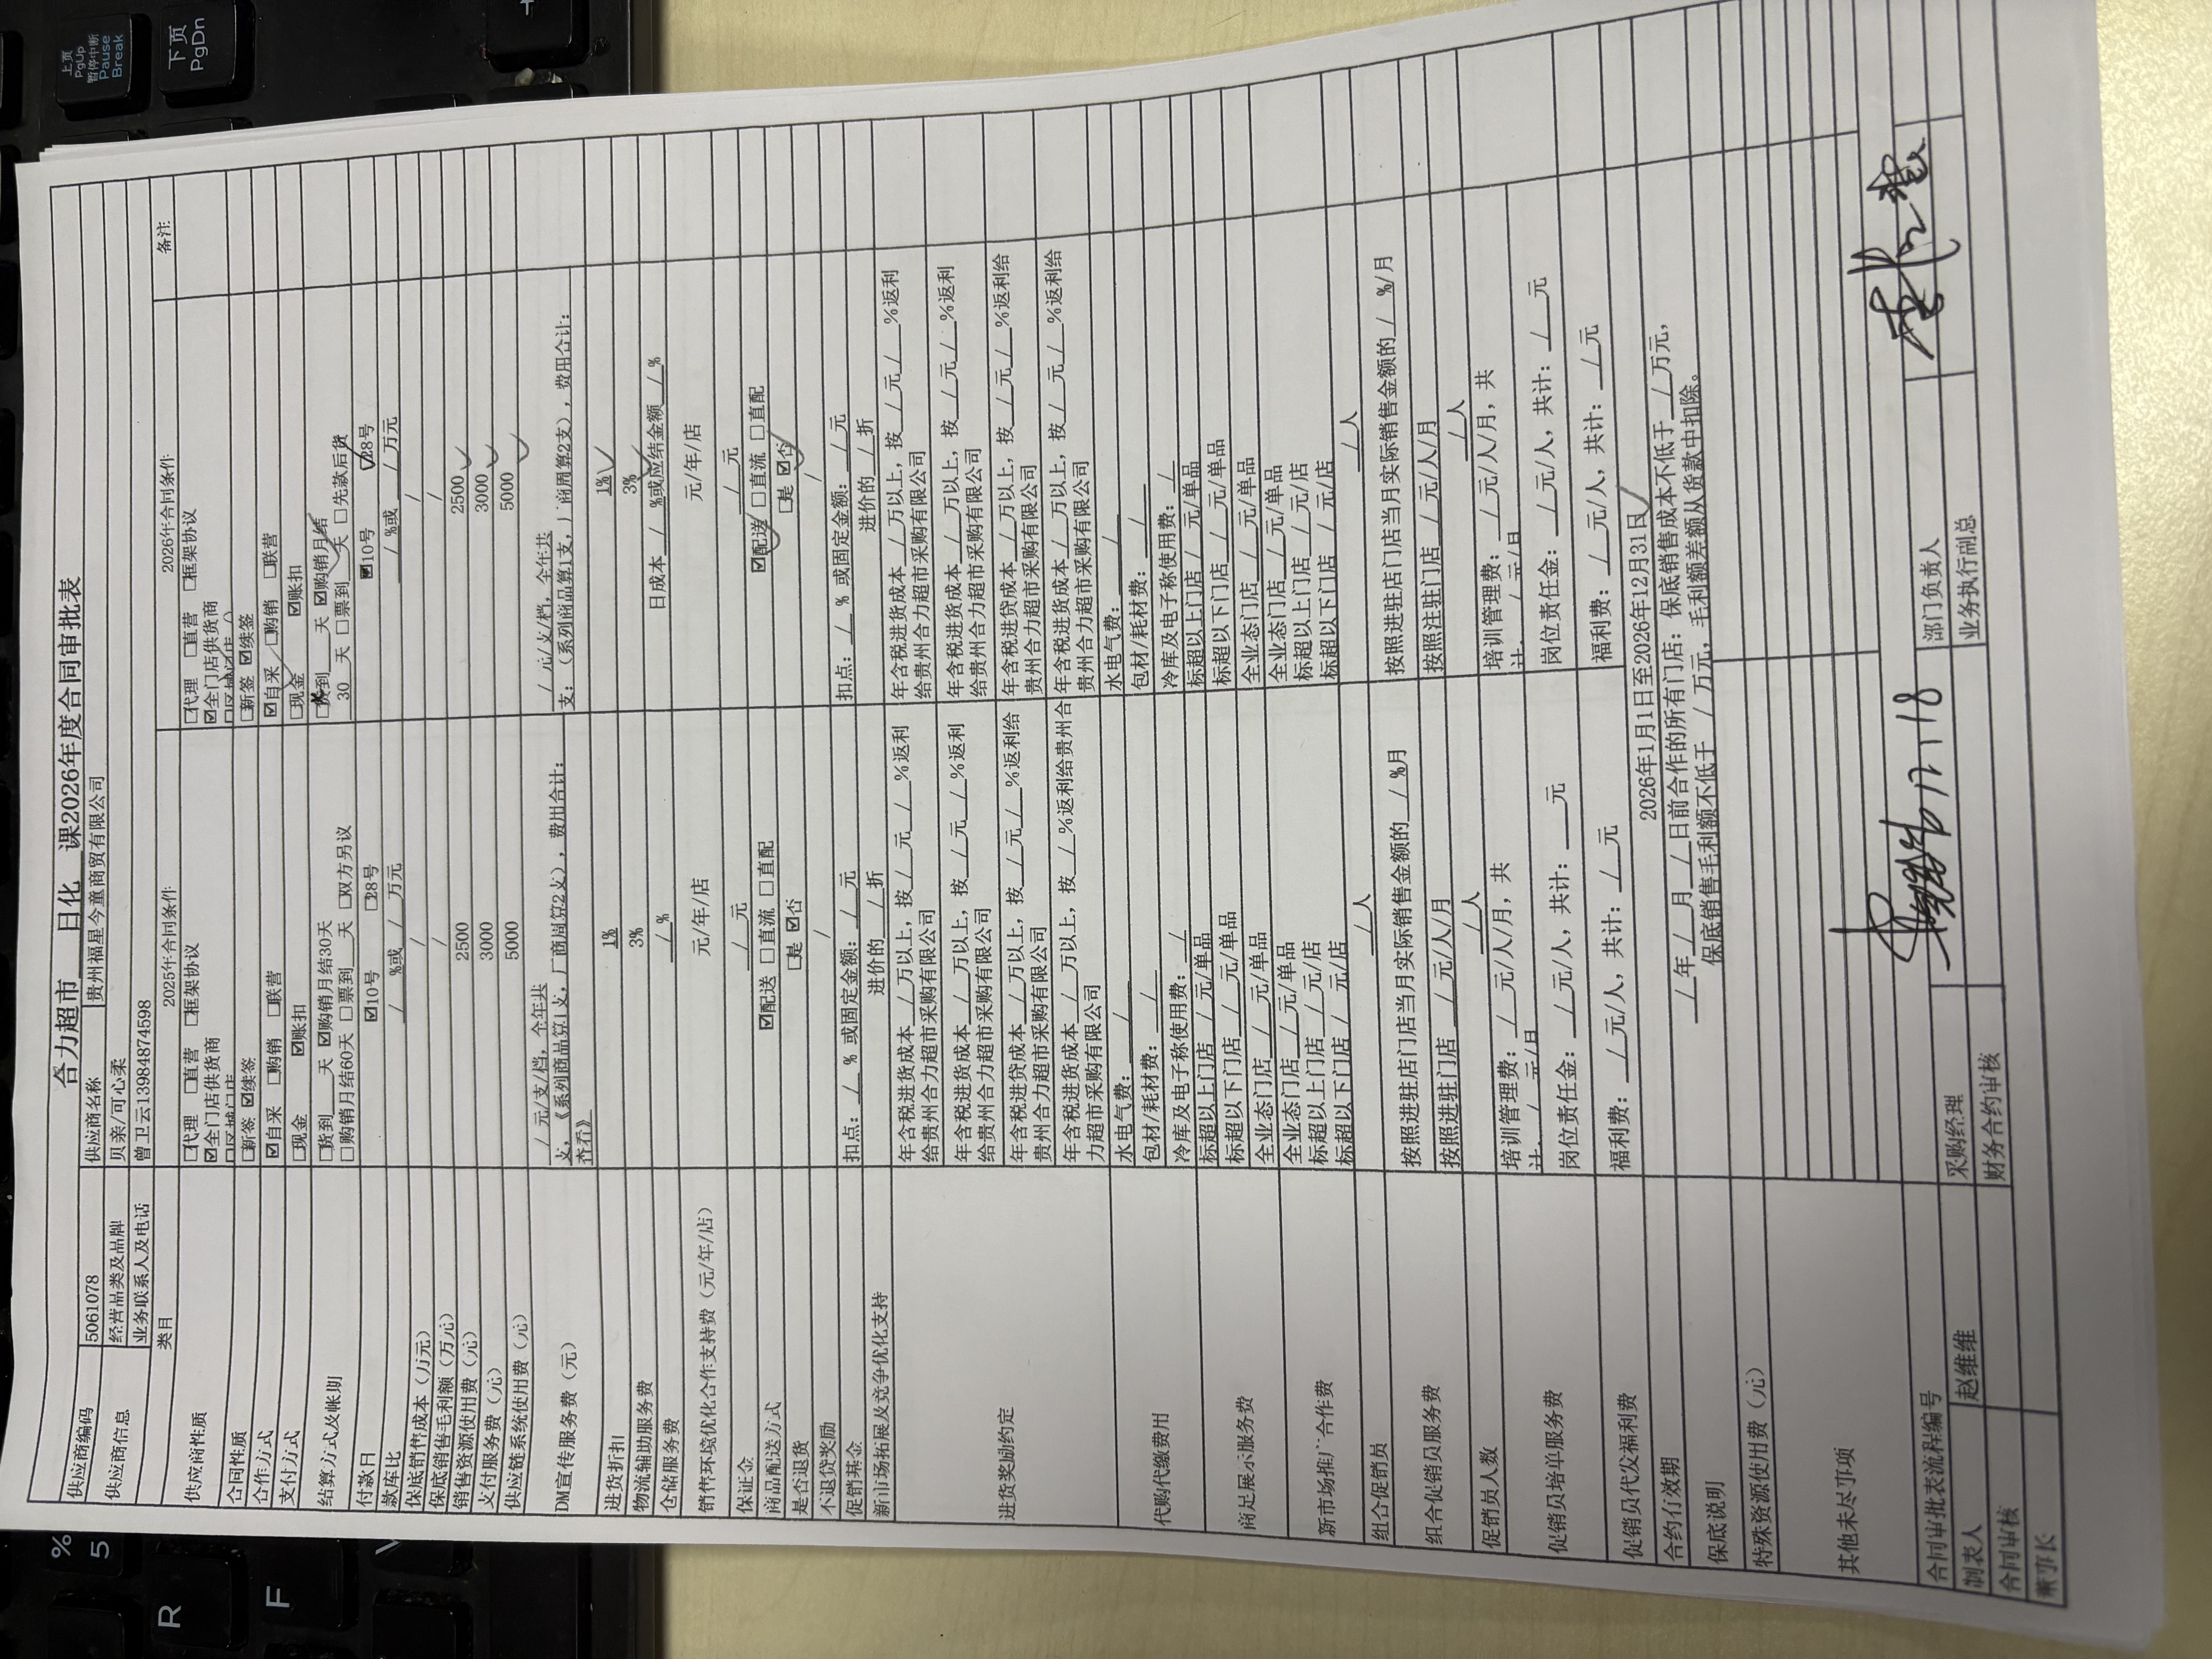 合力超市 日化 课2026年度合同审批表
供应商编码 5061078 供应商名称 贵州福星今童商贸有限公司
供应商信息 经营品类及品牌 贝亲/可心柔
业务联系人及电话 曾卫云13984874598
类目 2025年合同条件 2026年合同条件 备注
供应商性质 □代理 □直营 □框架协议 □代理 □直营 □框架协议
☑全门店供货商 ☑全门店供货商
合同性质 □新签 ☑续签 □新签 ☑续签
合作方式 ☑自采 □购销 □联营 ☑自采 □购销 □联营
支付方式 □现金 ☑账扣 □现金 ☑账扣
结算方式及帐期 □货到 天 ☑购销月结30天 □货到 天 ☑购销月结
□购销月结60天 □票到 天 □双方另议 30 天 □票到 天 □先款后货
付款日 ☑10号 □28号 ☑10号 □28号
款库比 / %或 / 万元 / %或 / 万元
保底销售成本（万元） / /
保底销售毛利额（万元） / /
销售资源使用费（元） 2500 2500
支付服务费（元） 3000 3000
供应链系统使用费（元） 5000 5000
DM宣传服务费（元） / 元/支/档，全年共 / 元/支/档，全年共
支，《系列商品算1支，厂商周算2支），费用合计： 支；（系列商品算1支，厂商周算2支），费用合计：
进货折扣 1% 1%
物流辅助服务费 3% 3%
仓储服务费 / % 日成本 / %或应结金额 / %
销售环境优化合作支持费（元/年/店） 元/年/店 元/年/店
保证金 / 元 / 元
商品配送方式 ☑配送 □直流 □直配 ☑配送 □直流 □直配
是否退货 □是 ☑否 □是 ☑否
不退货奖励 / /
促销基金 扣点： / % 或固定金额： / 元 扣点： / % 或固定金额： / 元
新市场拓展及竞争优化支持 进价的 / 折 进价的 / 折
进货奖励约定 年含税进货成本 / 万以上，按 / 元 / %返利 年含税进货成本 / 万以上，按 / 元 / %返利
给贵州合力超市采购有限公司 给贵州合力超市采购有限公司
年含税进货成本 / 万以上，按 / 元 / %返利 年含税进货成本 / 万以上，按 / 元 / %返利
给贵州合力超市采购有限公司 给贵州合力超市采购有限公司
年含税进货成本 / 万以上，按 / 元 / %返利给 年含税进货成本 / 万以上，按 / 元 / %返利给
贵州合力超市采购有限公司 贵州合力超市采购有限公司
年含税进货成本 / 万以上，按 / %返利给贵州合 年含税进货成本 / 万以上，按 / 元 / %返利给
力超市采购有限公司 贵州合力超市采购有限公司
代购代缴费用 水电气费： / 水电气费： /
包材/耗材费： / 包材/耗材费： /
冷库及电子称使用费： / 冷库及电子称使用费： /
商品展示服务费 标超以上门店 / 元/单品 标超以上门店 / 元/单品
标超以下门店 / 元/单品 标超以下门店 / 元/单品
全业态门店 / 元/单品 全业态门店 / 元/单品
新市场推广合作费 全业态门店 / 元/单品 全业态门店 / 元/单品
标超以上门店 / 元/店 标超以上门店 / 元/店
标超以下门店 / 元/店 标超以下门店 / 元/店
组合促销员 / 人 / 人
组合促销员服务费 按照进驻店门店当月实际销售金额的 / %/月 按照进驻店门店当月实际销售金额的 / %/月
按照进驻门店 / 元/人/月 按照注驻门店 / 元/人/月
促销员人数 / 人 / 人
促销员培单服务费 培训管理费： / 元/人/月，共 培训管理费： / 元/人/月，共
计： / 元/月 计： / 元/月
岗位责任金： / 元/人，共计： 元 岗位责任金： / 元/人，共计： / 元
促销员代发福利费 福利费： / 元/人，共计： / 元 福利费： / 元/人，共计： / 元
合约有效期 2026年1月1日至2026年12月31日
保底说明 / 年 / 月 / 日前合作的所有门店：保底销售成本不低于 / 万元，
保底销售毛利额不低于 / 万元，毛利额差额从货款中扣除。
特殊资源使用费（元）
其他未尽事项
合同审批表流程编号
制表人 赵维维 采购经理 12.18 部门负责人
合同审核 财务合约审核 业务执行副总
董事长